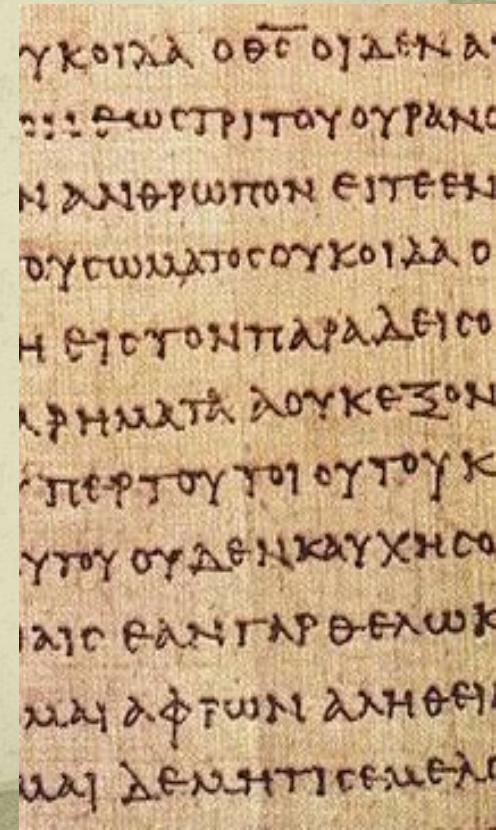 ΥΚΟΙΔΑ Ο Θ̅Ϲ̅ ΟΙΔΕΝ Α
ΕΩϹΤΡΙΤΟΥ ΟΥΡΑΝΟ
Ν ΑΝΘΡΩΠΟΝ ΕΙΤΕΕΝ
ΟΥϹΩΜΑΤΟϹΟΥΚΟΙΔΑ Ο
Η ΕΙϹΤΟΝΠΑΡΑΔΕΙϹΟ
ΑΡΗΜΑΤΑ ΑΟΥΚΕΞΟΝ
ΥΠΕΡΤΟΥΤΟΙΟΥΤΟΥ Κ
ΥΤΟΥ ΟΥΔΕΝΚΑΥΧΗϹΟ
ΑΙϹ ΕΑΝΓΑΡΘΕΛΩΚ
ΜΑΙ ΑΦΡΩΝ ΑΛΗΘΕΙΑ
ΜΑΙ ΔΕΜΗΤΙϹΕΜΕΛΟ